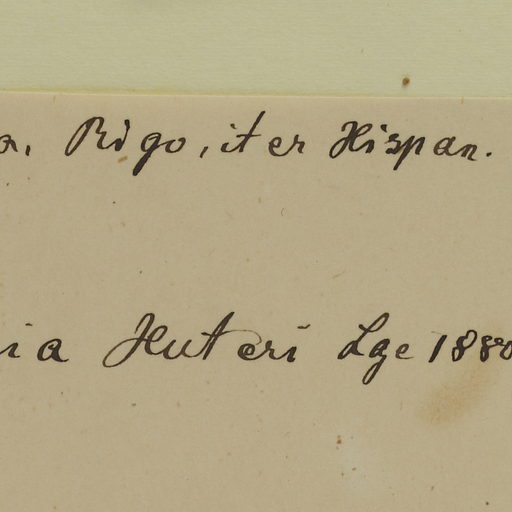 a, Rigo, iter Hispan.
ia Huteri Lge 1880